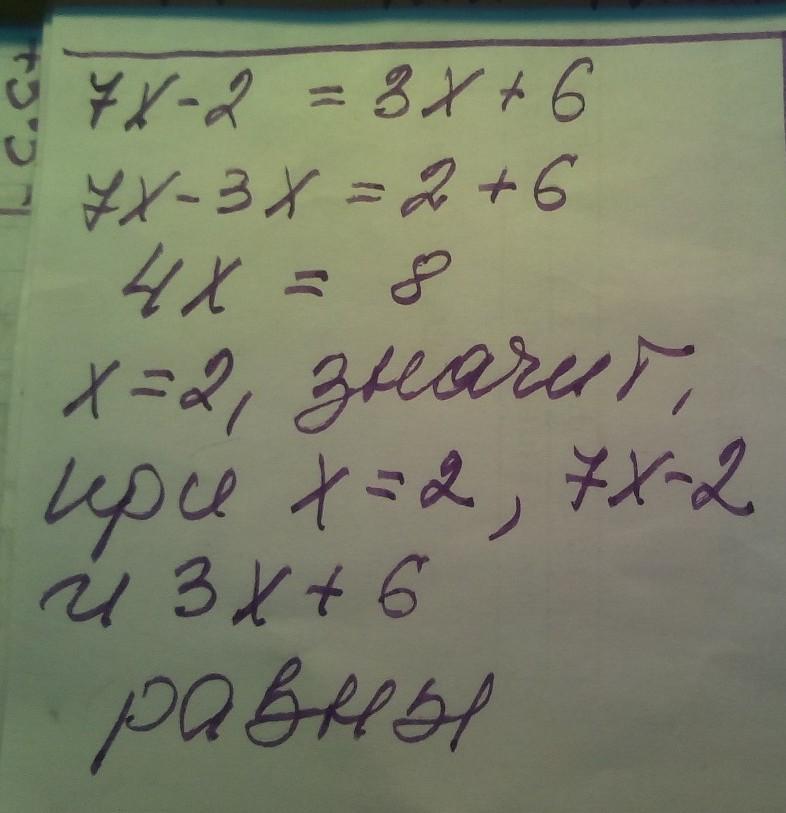 7x-2 = 3x+6
7x-3x=2+6
4x = 8
x=2, значит,
при x=2, 7x-2
и 3x+6
равны